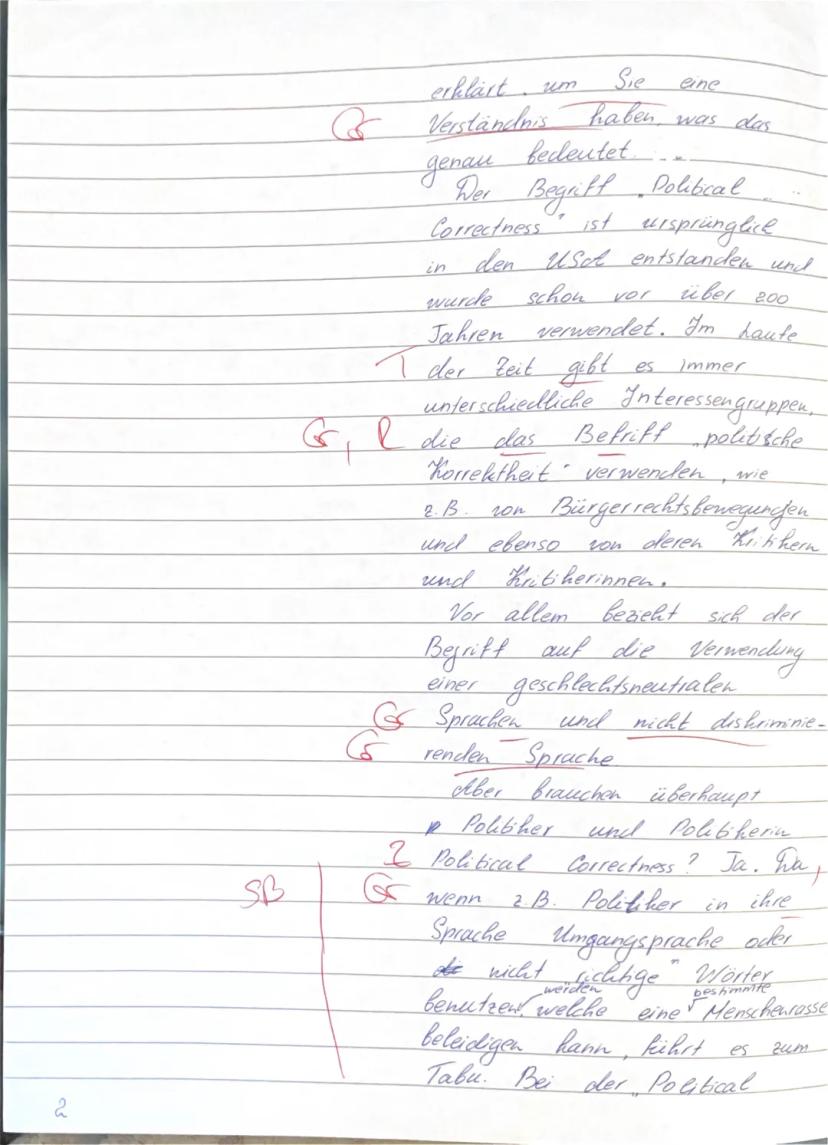 erklärt. um Sie eine
Gr Verständnis haben, was das
genau bedeutet.
Der Begriff „Political
Correctness" ist ursprünglich
in den USA entstanden und
wurde schon vor über 200
Jahren verwendet. Im Laufe
T der Zeit gibt es immer
unterschiedliche Interessengruppen,
Gr, R die das Befriff „politische
Korrektheit" verwenden, wie
z.B. von Bürgerrechtsbewegungen
und ebenso von deren Kritikern
und Kritikerinnen.
Vor allem bezieht sich der
Begriff auf die Verwendung
einer geschlechtsneutralen
Gr Sprachen und nicht diskriminie-
Gr renden Sprache
Aber brauchen überhaupt
Politiker und Politikerin
Z Political Correctness? Ja. Da,
SB Gr wenn z.B. Politiker in ihre
Sprache Umgangsprache oder
nicht „richtige" Wörter
werden bestimmte
benutzen, welche eine Menschenrasse
beleidigen kann, führt es zum
Tabu. Bei der „Political
2